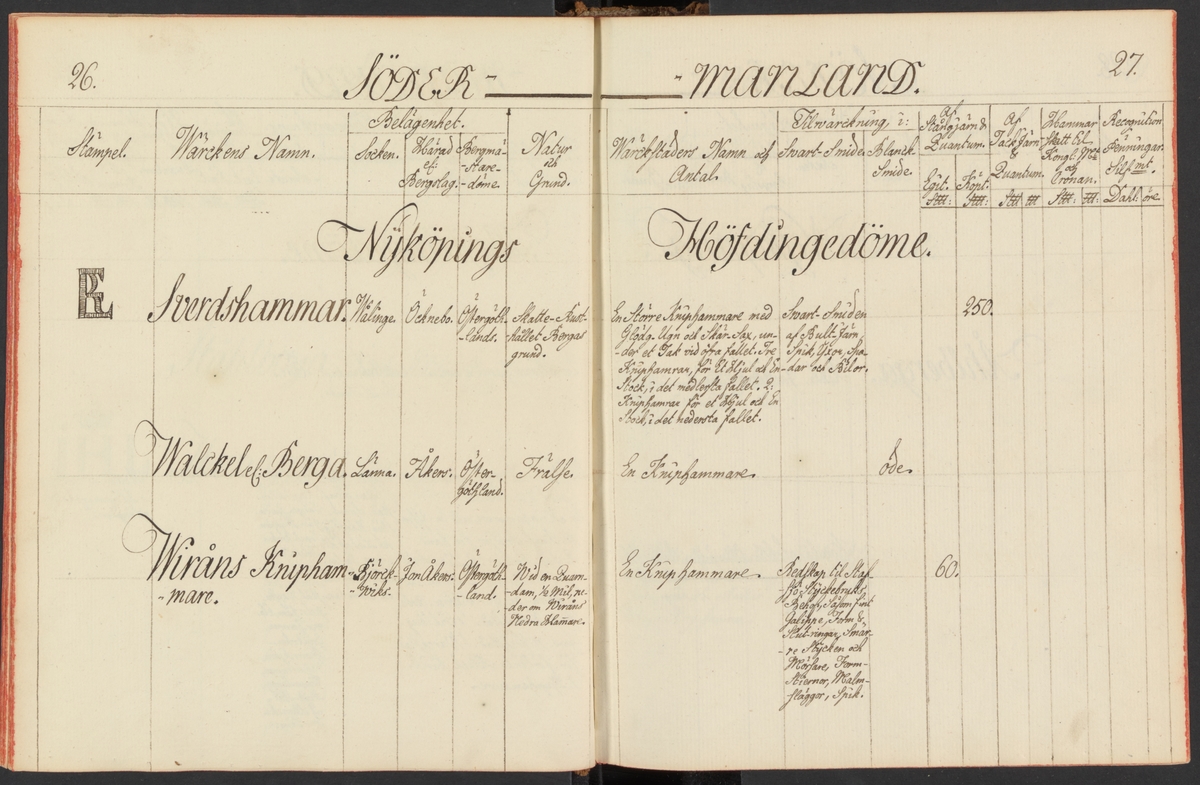 26.
SÖDER-
-MANLAND.
27.
Stämpel.
Wärckens Namn.
Belägenhet.
Socken.
Härad
el:
Bergslag.
Bergmä-
-stare-
-döme.
Natur
och
Grund.
Wärckstäders Namn och
Antal.
Tilwärckning, i:
Svart-Smide.
Blanck-
Smide.
Af
Stångjärn &
Quantum.
Egit.
Köpt.
Af
Tackjärn
&
Quantum.
Hammar
Skatt til
Kongl: Mt
och
Cronan.
Recognition
Penningar
Silf mt.
Dahl: öre
Nyköpings
Höfdingedöme.
Sverdshammar.
Wälinge.
Öcknebo.
Östergöth-
-lands.
Skatte-Rust-
-hållet Bergas
grund.
En Större Knip hammare med
Glödg-Ugn och Skär-Sax, un-
-der et Tak vid öfra fallet. Tre
Kniphamrar, för et Hjul och En
Stock, i det medlersta fallet. 2:
Kniphamrar för et Hjul och En
Stock, i det nedersta fallet.
Svart-Smiden
af Bult-Järn,
Spik, Yxor, Spa-
-dar och Bilor.
250.
Walckel el: Berga.
Länna.
Åkers.
Öster-
göthland.
Frälse.
En Kniphammare.
öde.
Wiråns Knipham-
-mare.
Björck-
-wiks.
Jonåkers.
Östergöth-
-land.
Wid en Quarn-
-dam, 1/2 Mil, ne-
-der om Wiråns
Nedra Hammare.
En Kniphammare.
Redskap til Staf-
-sjö Styckebruks
Behof, såsom fint
Form &
Slut-ringar, Smär-
-re Stycken och
Mörsare, Form-
Stiernor, Malm-
släggor, Spik.
60.